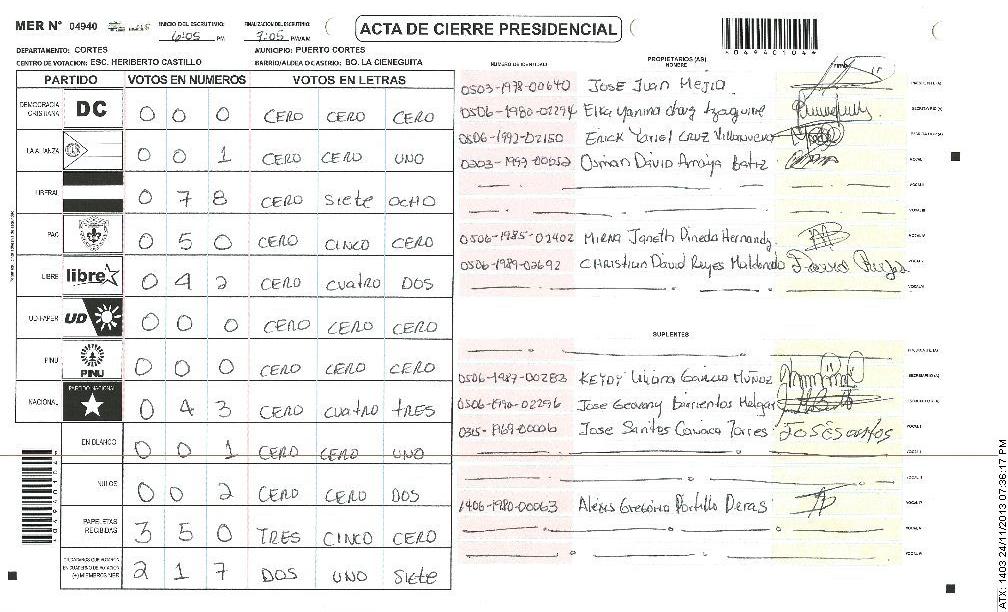 MER N° 04940
INICIO DEL ESCRUTINIO: 6:05 PM
FINALIZACION DEL ESCRUTINIO: 7:05 PM/AM
ACTA DE CIERRE PRESIDENCIAL
DEPARTAMENTO: CORTES
MUNICIPIO: PUERTO CORTES
CENTRO DE VOTACION: ESC. HERIBERTO CASTILLO
BARRIO/ALDEA O CASTRIO: BO. LA CIENEGUITA
PARTIDO VOTOS EN NUMEROS VOTOS EN LETRAS
DEMOCRACIA CRISTIANA DC 0 0 0 CERO CERO CERO
LA ALIANZA 0 0 1 CERO CERO UNO
LIBERAL 0 7 8 CERO Siete OCHO
PAC 0 5 0 CERO CINCO CERO
LIBRE libre 0 4 2 CERO cuatro DOS
UD-FAPER UD 0 0 0 CERO CERO CERO
PINU PINU 0 0 0 CERO CERO CERO
NACIONAL PARTIDO NACIONAL 0 4 3 CERO cuatro TRES
EN BLANCO 0 0 1 CERO CERO UNO
NULOS 0 0 2 CERO CERO DOS
PAPELETAS RECIBIDAS 3 5 0 TRES CINCO CERO
(+) MIEMBROS MER 2 1 7 DOS UNO Siete
*04940104*
NUMERO DE IDENTIDAD
PROPIETARIOS (AS)
NOMBRE
FIRMA
0503-1978-00640 Jose Juan Mejia PRESIDENTE(A)
0506-1980-02294 SECRETARIO(A)
0506-1992-02150 Erick Yariel Cruz Villanueva ESCRUTADOR(A)
Osman David Amaya Batiz VOCAL I
VOCAL II
VOCAL III
0506-1985-02402 Mirna Janeth Pineda Hernandz VOCAL IV
0506-1989-02692 Christian David Reyes Maldonado VOCAL V
VOCAL VI
SUPLENTES
PRESIDENTE(A)
0506-1987-00283 Keydy Liliana Garcia Muñoz SECRETARIO(A)
0506-1990-02296 Jose Geovany Barrientos Melgar ESCRUTADOR(A)
0315-1969-00006 Jose Santos Torres VOCAL I
VOCAL II
VOCAL III
1406-1980-00063 Alexis Gregorio Portillo Deras VOCAL IV
VOCAL V
VOCAL VI
ATX: 1403 24/11/2013 07:36:17 PM